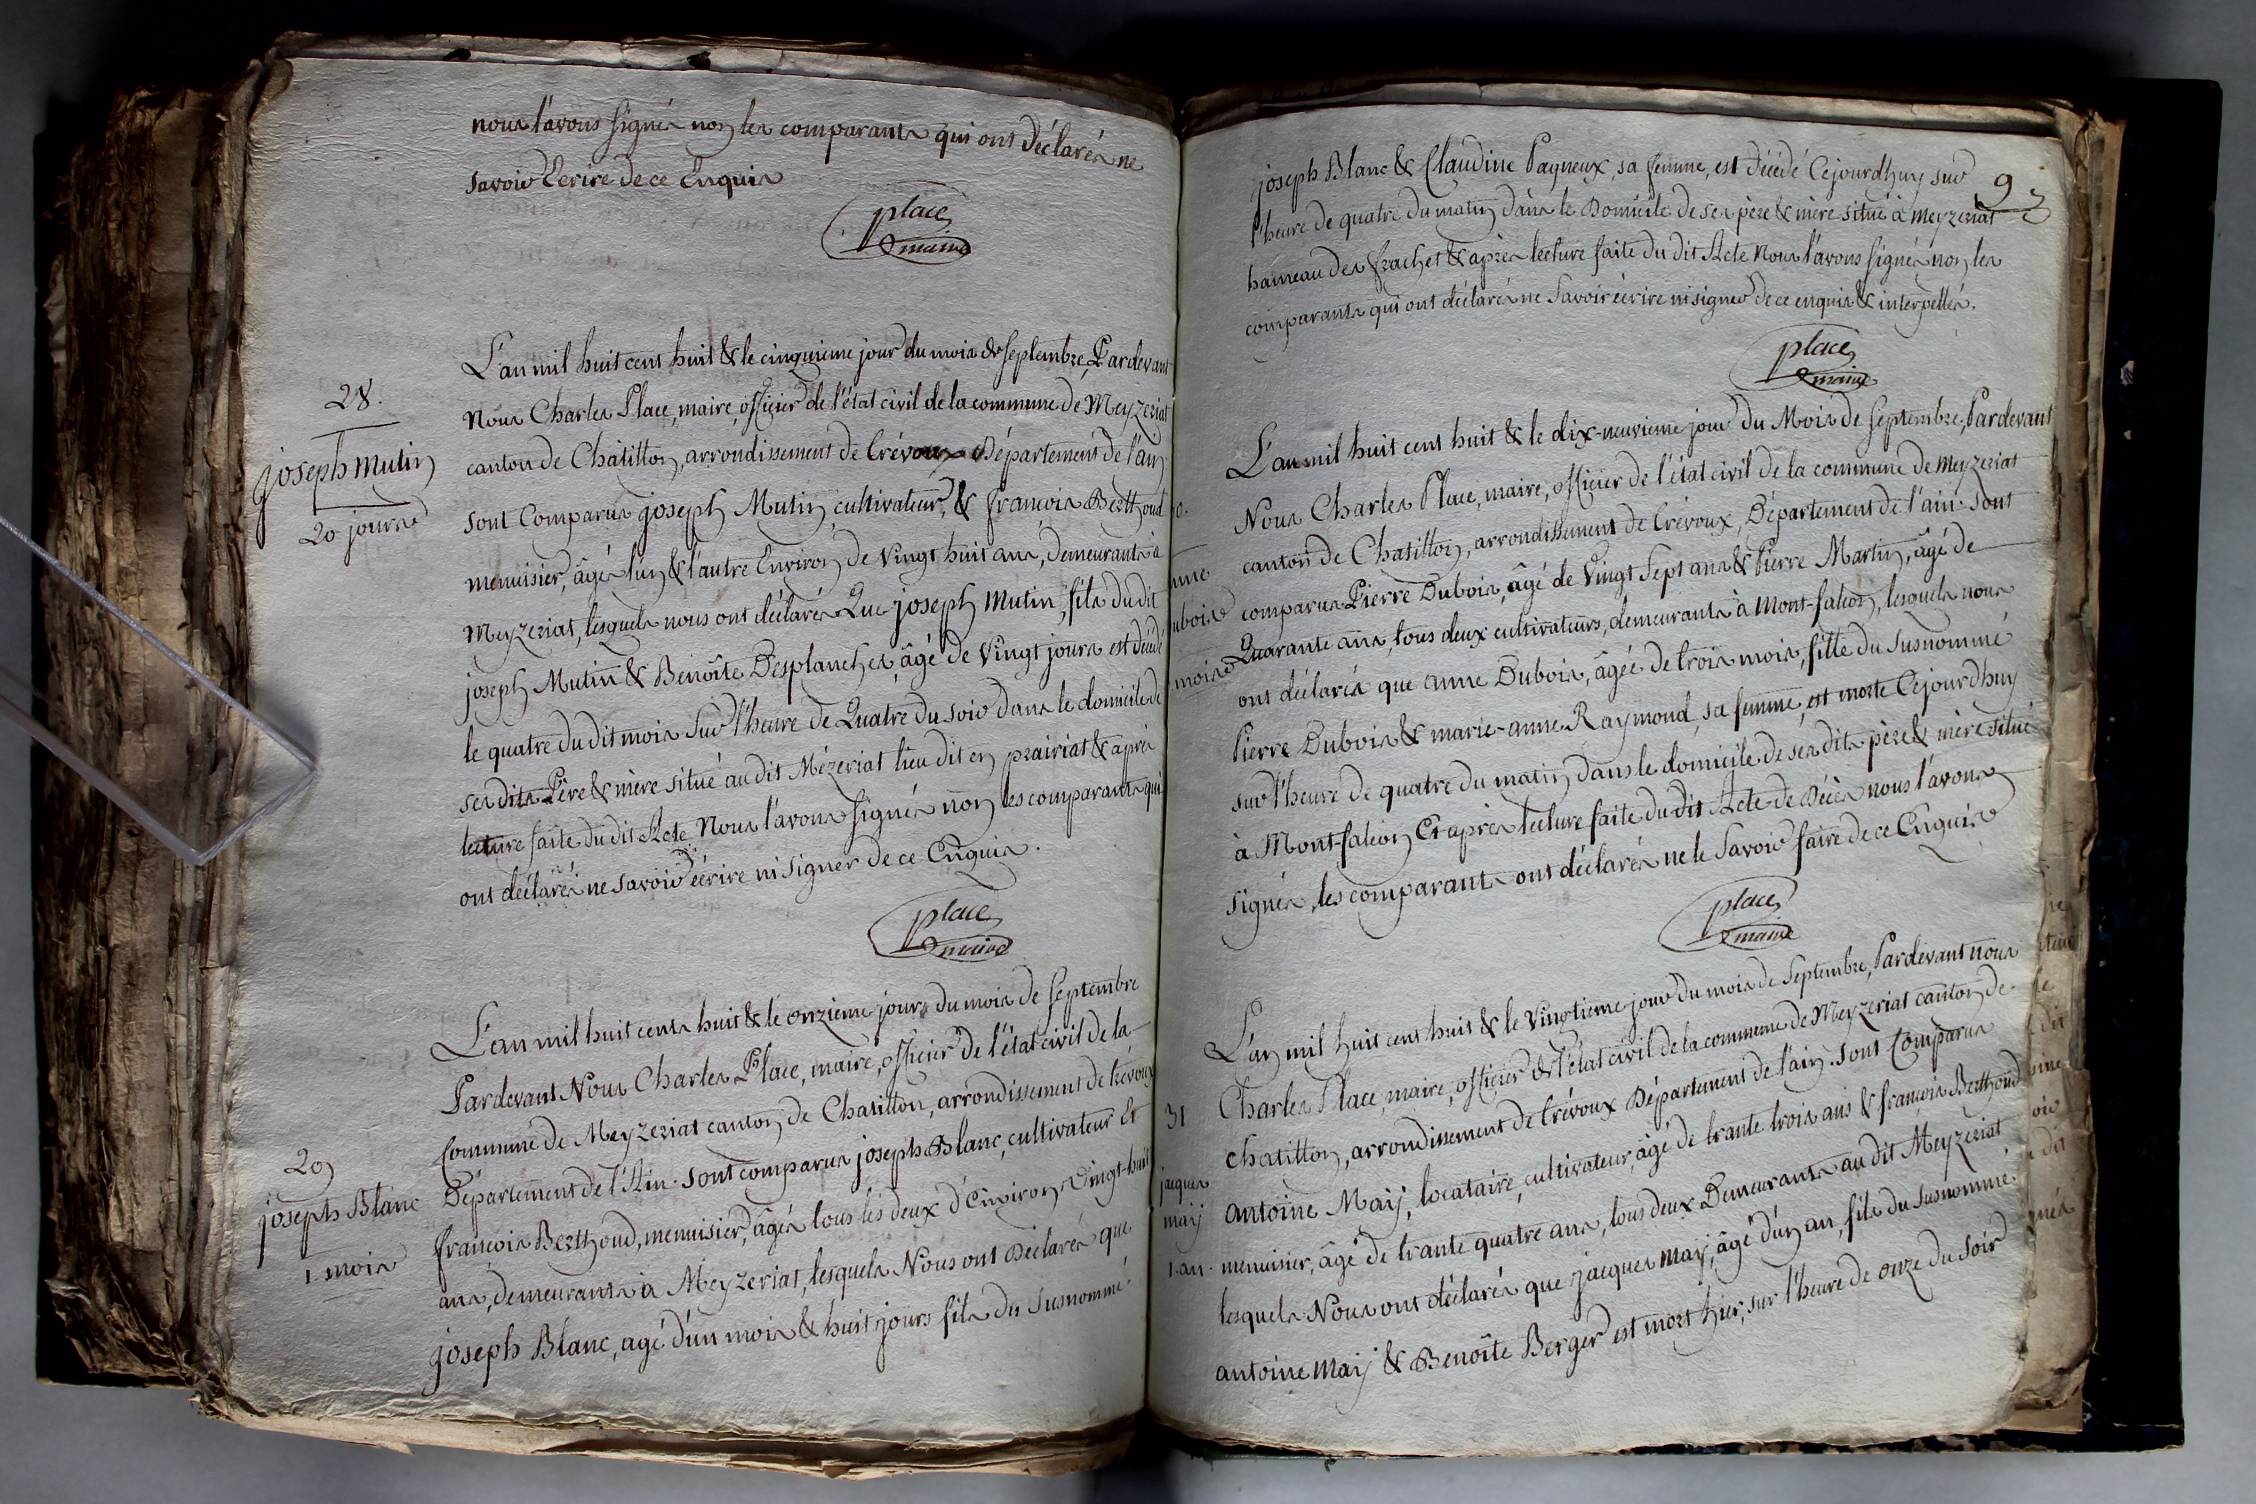 nous l'avons signés non les comparants qui ont déclarés ne
savoir Ecrire de ce Enquis
place
maire
28.
joseph Mutin
20 jours
L'an mil huit cent huit & le cinquieme jour du mois de septembre, Pardevant
Nous Charles Place, maire, officier de l'état civil de la commune de Meyzeriat
canton de Chatillon, arrondissement de trévoux Département de l'ain
sont Comparus joseph Mutin cultivateur, & françois Berthoud
menuisier, âgés l'un & l'autre Environ de vingt huit ans, demeurants à
Meyzeriat, lesquels nous ont déclarés Que joseph Mutin, fils du dit
joseph Mutin & Benoîte Desplanches âgé de Vingt jours est décédé
le quatre du dit mois sur l'heure de Quatre du soir dans le domicile de
ses dits Père & mère situé au dit Mézeriat lieu dit en prairiat & après
lecture faite du dit Acte Nous l'avons signés non les comparants qui
ont déclarés ne savoir écrire ni signer de ce Enquis.
place
maire
29
joseph Blanc
1 mois
L'an mil huit cents huit & le onzieme jour du mois de septembre
Pardevant Nous Charles Place, maire, officier de l'état civil de la
Commune de Meyzeriat canton de Chatillon, arrondissement de trévoux
Département de l'Ain. sont comparus joseph Blanc, cultivateur Et
françois Berthoud, menuisier, âgés tous les deux d'Environ Vingt-huit
ans, demeurants à Meyzeriat, lesquels Nous ont Déclarés que
joseph Blanc, agé d'un mois & huit jours fils du susnommé
93
joseph Blanc & Claudine Pagneux, sa femme, est décédé Cejourdhuy sur
l'heure de quatre du matin dans le Domicile de ses père & mère situé à Meyzeriat
hameau des frachet & après lecture faite du dit Acte Nous l'avons signés non les
comparants qui ont déclarés ne savoir écrire ni signer de ce enquis & interpellés.
place
maire
0.
nne
ubois
mois
L'an mil huit cent huit & le dix-neuvieme jour du Mois de septembre, Pardevant
Nous Charles Place, maire, officier de l'état civil de la commune de Meyzeriat
canton de Chatillon, arrondissement de trévoux, Département de l'ain. sont
comparus Pierre Dubois, âgé de Vingt sept ans & Pierre Martin, âgé de
Quarante ans, tous deux cultivateurs, demeurants à Mont-falcon, lesquels nous
ont déclarés que anne Dubois, âgée de trois mois, fille du susnommé
Pierre Dubois & marie-anne Raymond, sa femme, est morte Cejourdhuy
sur l'heure de quatre du matin dans le domicile de ses dits père & mère situé
à Mont-falcon Et après lecture faite du dit Acte de Décès nous l'avons
signés, les comparants ont déclarés ne le savoir faire de ce Enquis
place
maire
31
jacques
maij
1. an.
L'an mil huit cent huit & le Vingtieme jour du mois de septembre, Pardevant nous
Charles Place, maire, officier de l'état civil de la commune de Meyzeriat canton de
chatillon, arrondissement de trévoux Département de l'ain. sont Comparus
antoine Maij, locataire, cultivateur, âgé de trante trois ans & françois Berthoud
menuisier, âgé de trante quatre ans, tous deux Demeurants au dit Meyzeriat
lesquels Nous ont déclarés que jacques maij, âgé d'un an, fils du susnommé
antoine maij & Benoîte Berger est mort hier, sur l'heure de onze du soir